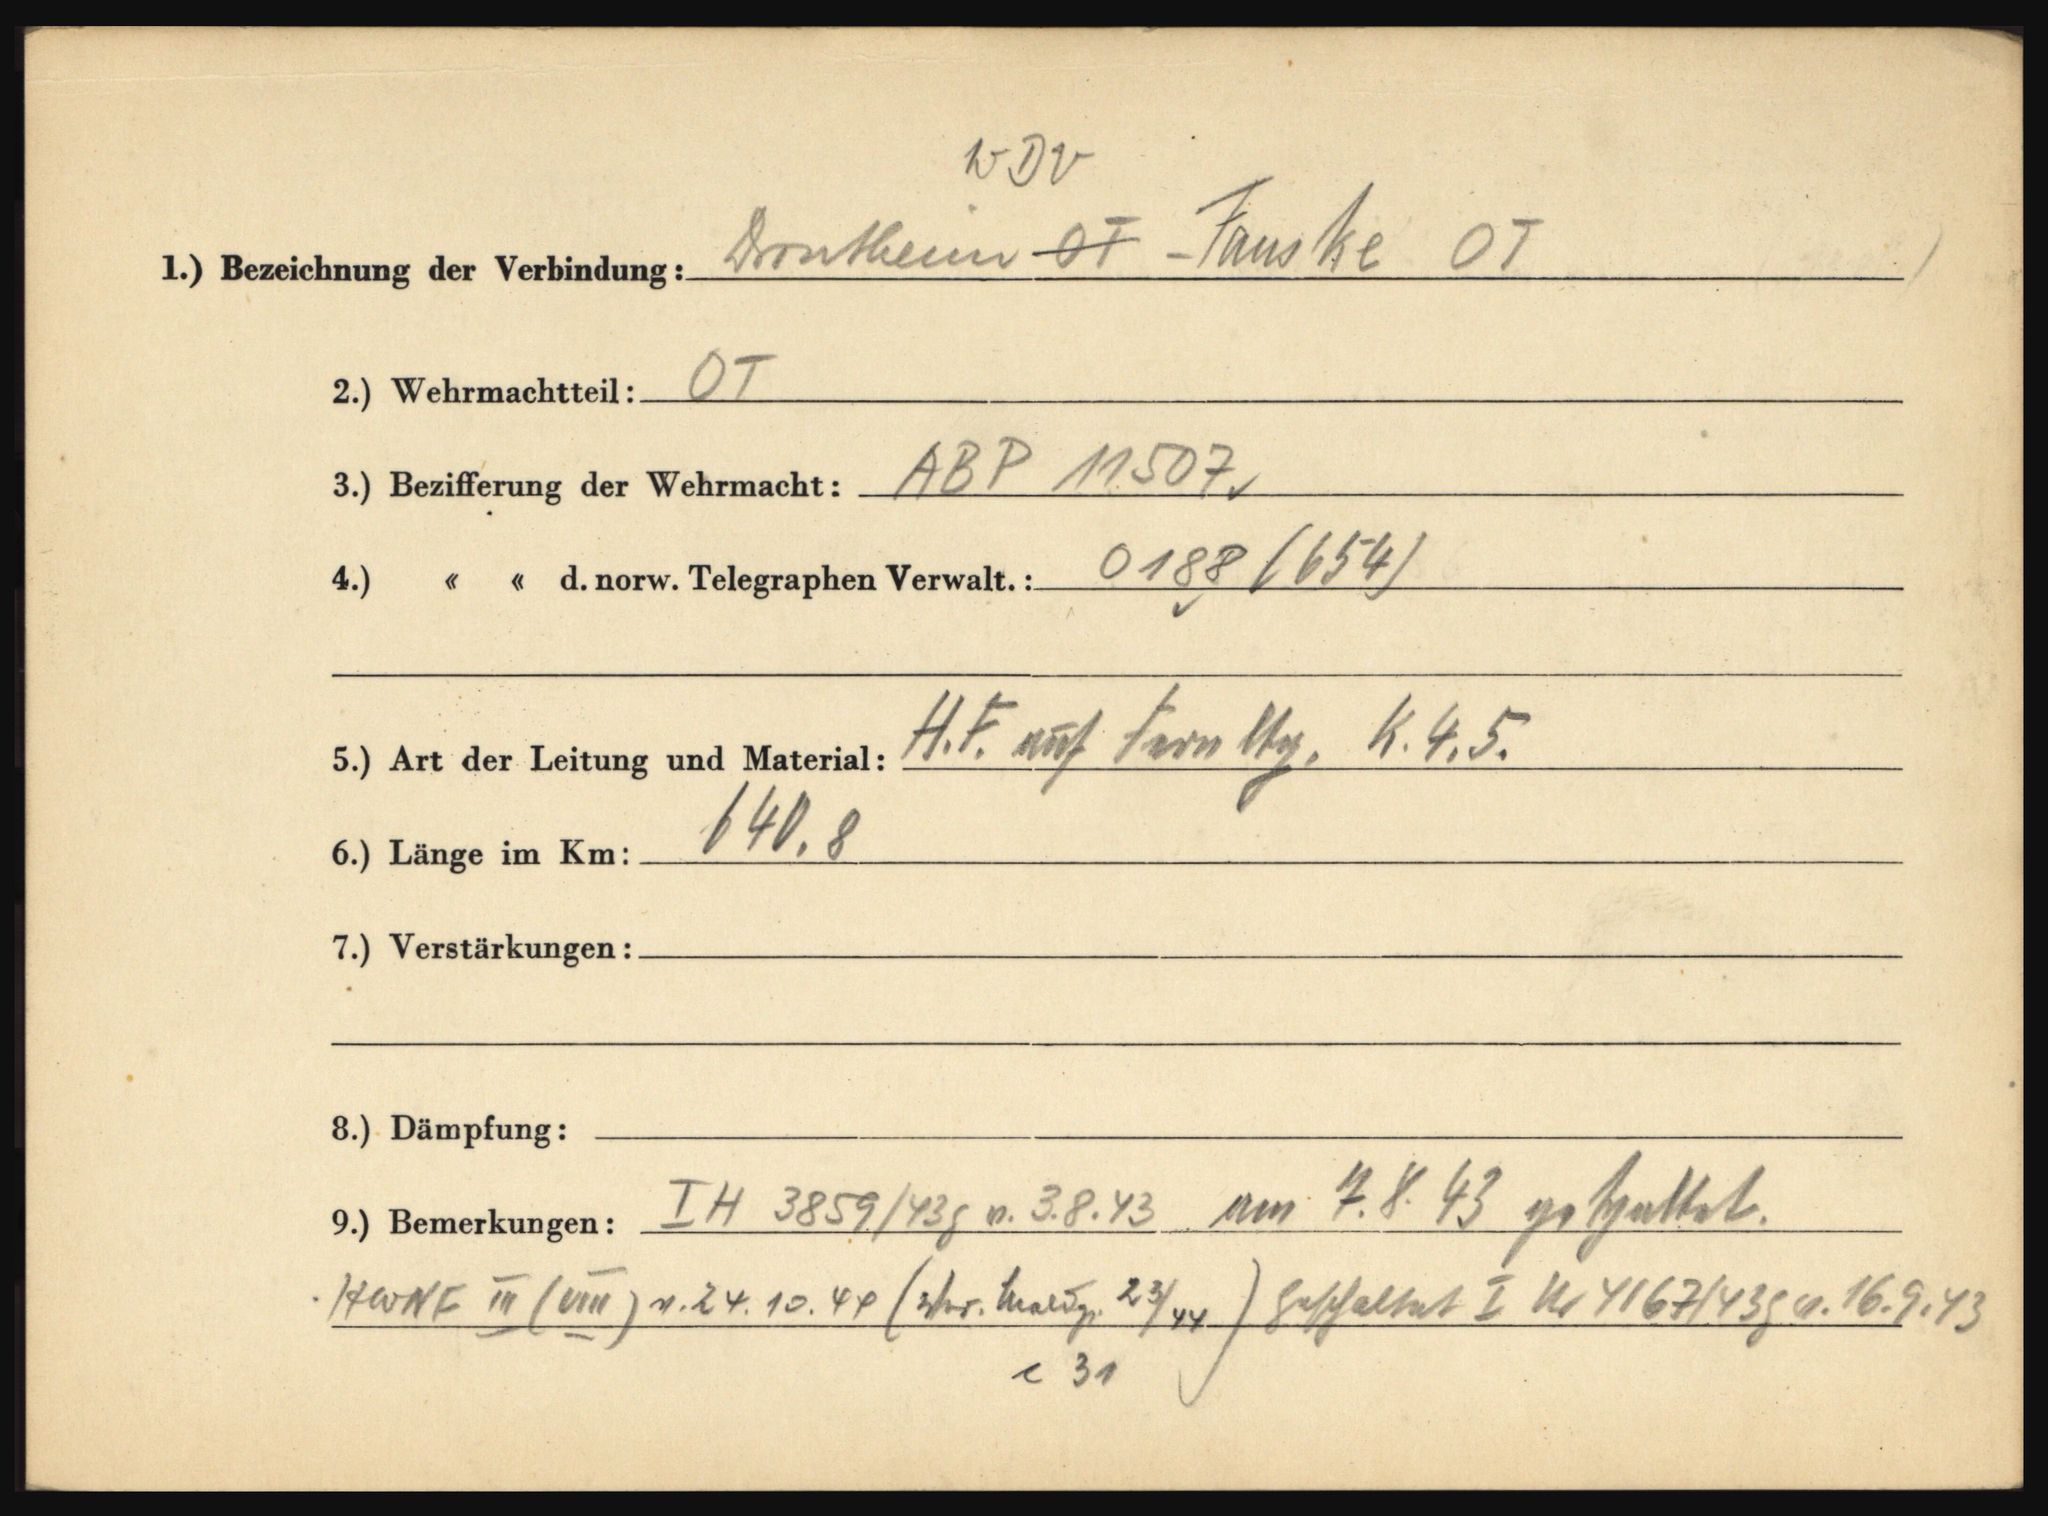 WDV
1.) Bezeichnung der Verbindung: Drontheim OT - Fauske OT
2.) Wehrmachtteil: OT
3.) Bezifferung der Wehrmacht: ABP 11507
4.) « « d. norw. Telegraphen Verwalt.: 0188 (654)
5.) Art der Leitung und Material: H.F. auf Fernltg. K. 4,5.
6.) Länge im Km: 640,8
7.) Verstärkungen:
8.) Dämpfung:
9.) Bemerkungen: I H 3859/43g v. 3.8.43 am 7.8.43 geschaltet.
HWNF III (VIII) v. 24.10.44 ( 23/44 ) Geschaltet I Nr 4167/43g v. 16.9.43
c 31